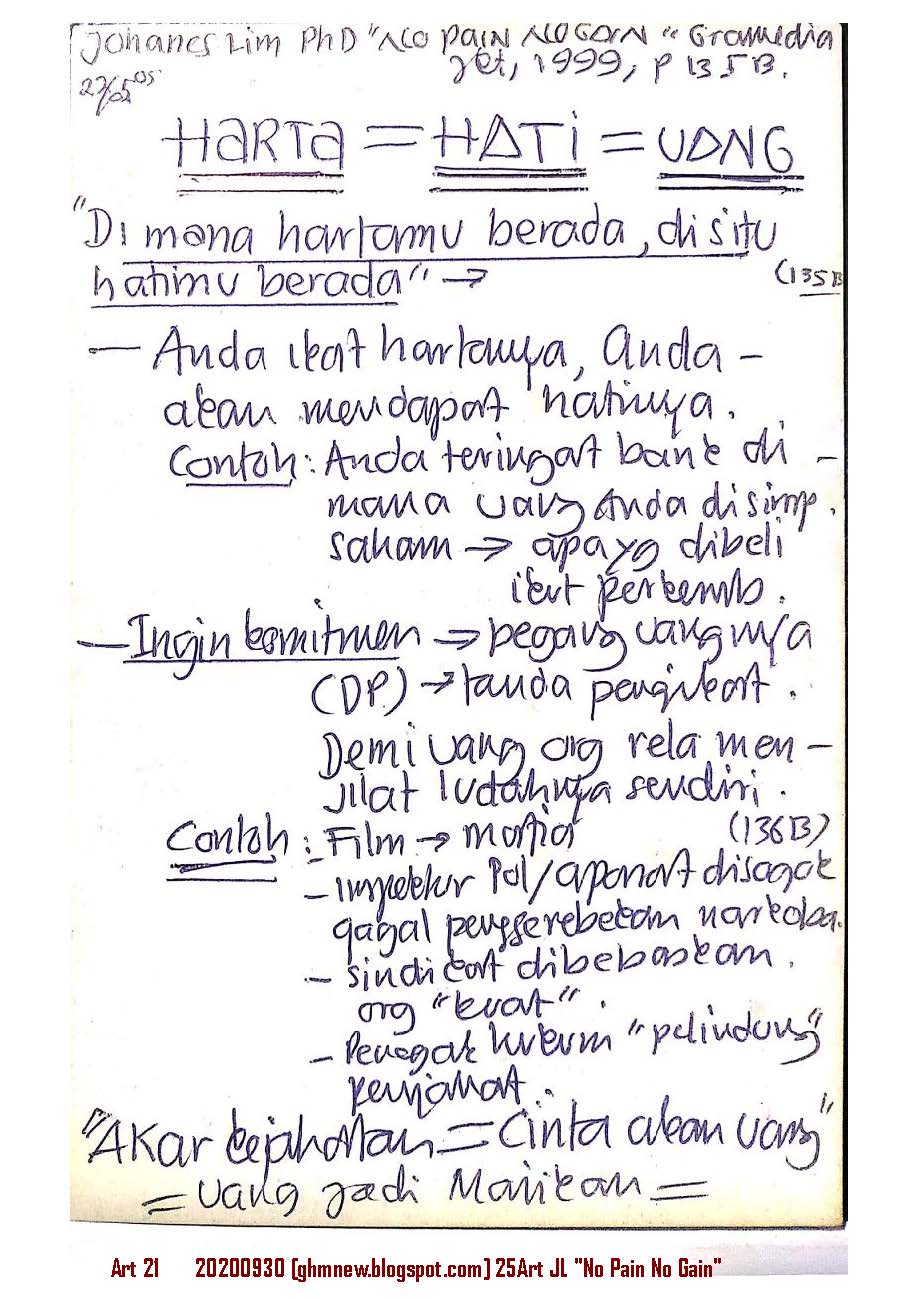 Johanes Lim PhD "NO PAIN NO GAIN" Gramedia
Jkt, 1999, p 135B.
HARTA = HATI = UANG
"Di mana hartamu berada, disitu
hatimu berada" → (135B
— Anda ikat hartanya, Anda –
akan mendapat hatinya.
Contoh: Anda teringat bank di –
mana uang Anda disimp.
saham → apa yg dibeli
ikut perkemb.
— Ingin komitmen → pegang uangnya
(DP) → tanda pengikat.
Demi uang org rela men –
jilat ludahnya sendiri.
Contoh : Film → mafia (136B)
– Inspektur Pol/aparat disogok
gagal penggerebekan narkoba.
– sindikat dibebaskan.
org "kuat".
– Penegak hukum "pelindung"
penjahat.
"Akar kejahatan = Cinta akan uang"
= uang jadi Majikan =
Art 21 20200930 (ghmnew.blogspot.com) 25Art JL "No Pain No Gain"